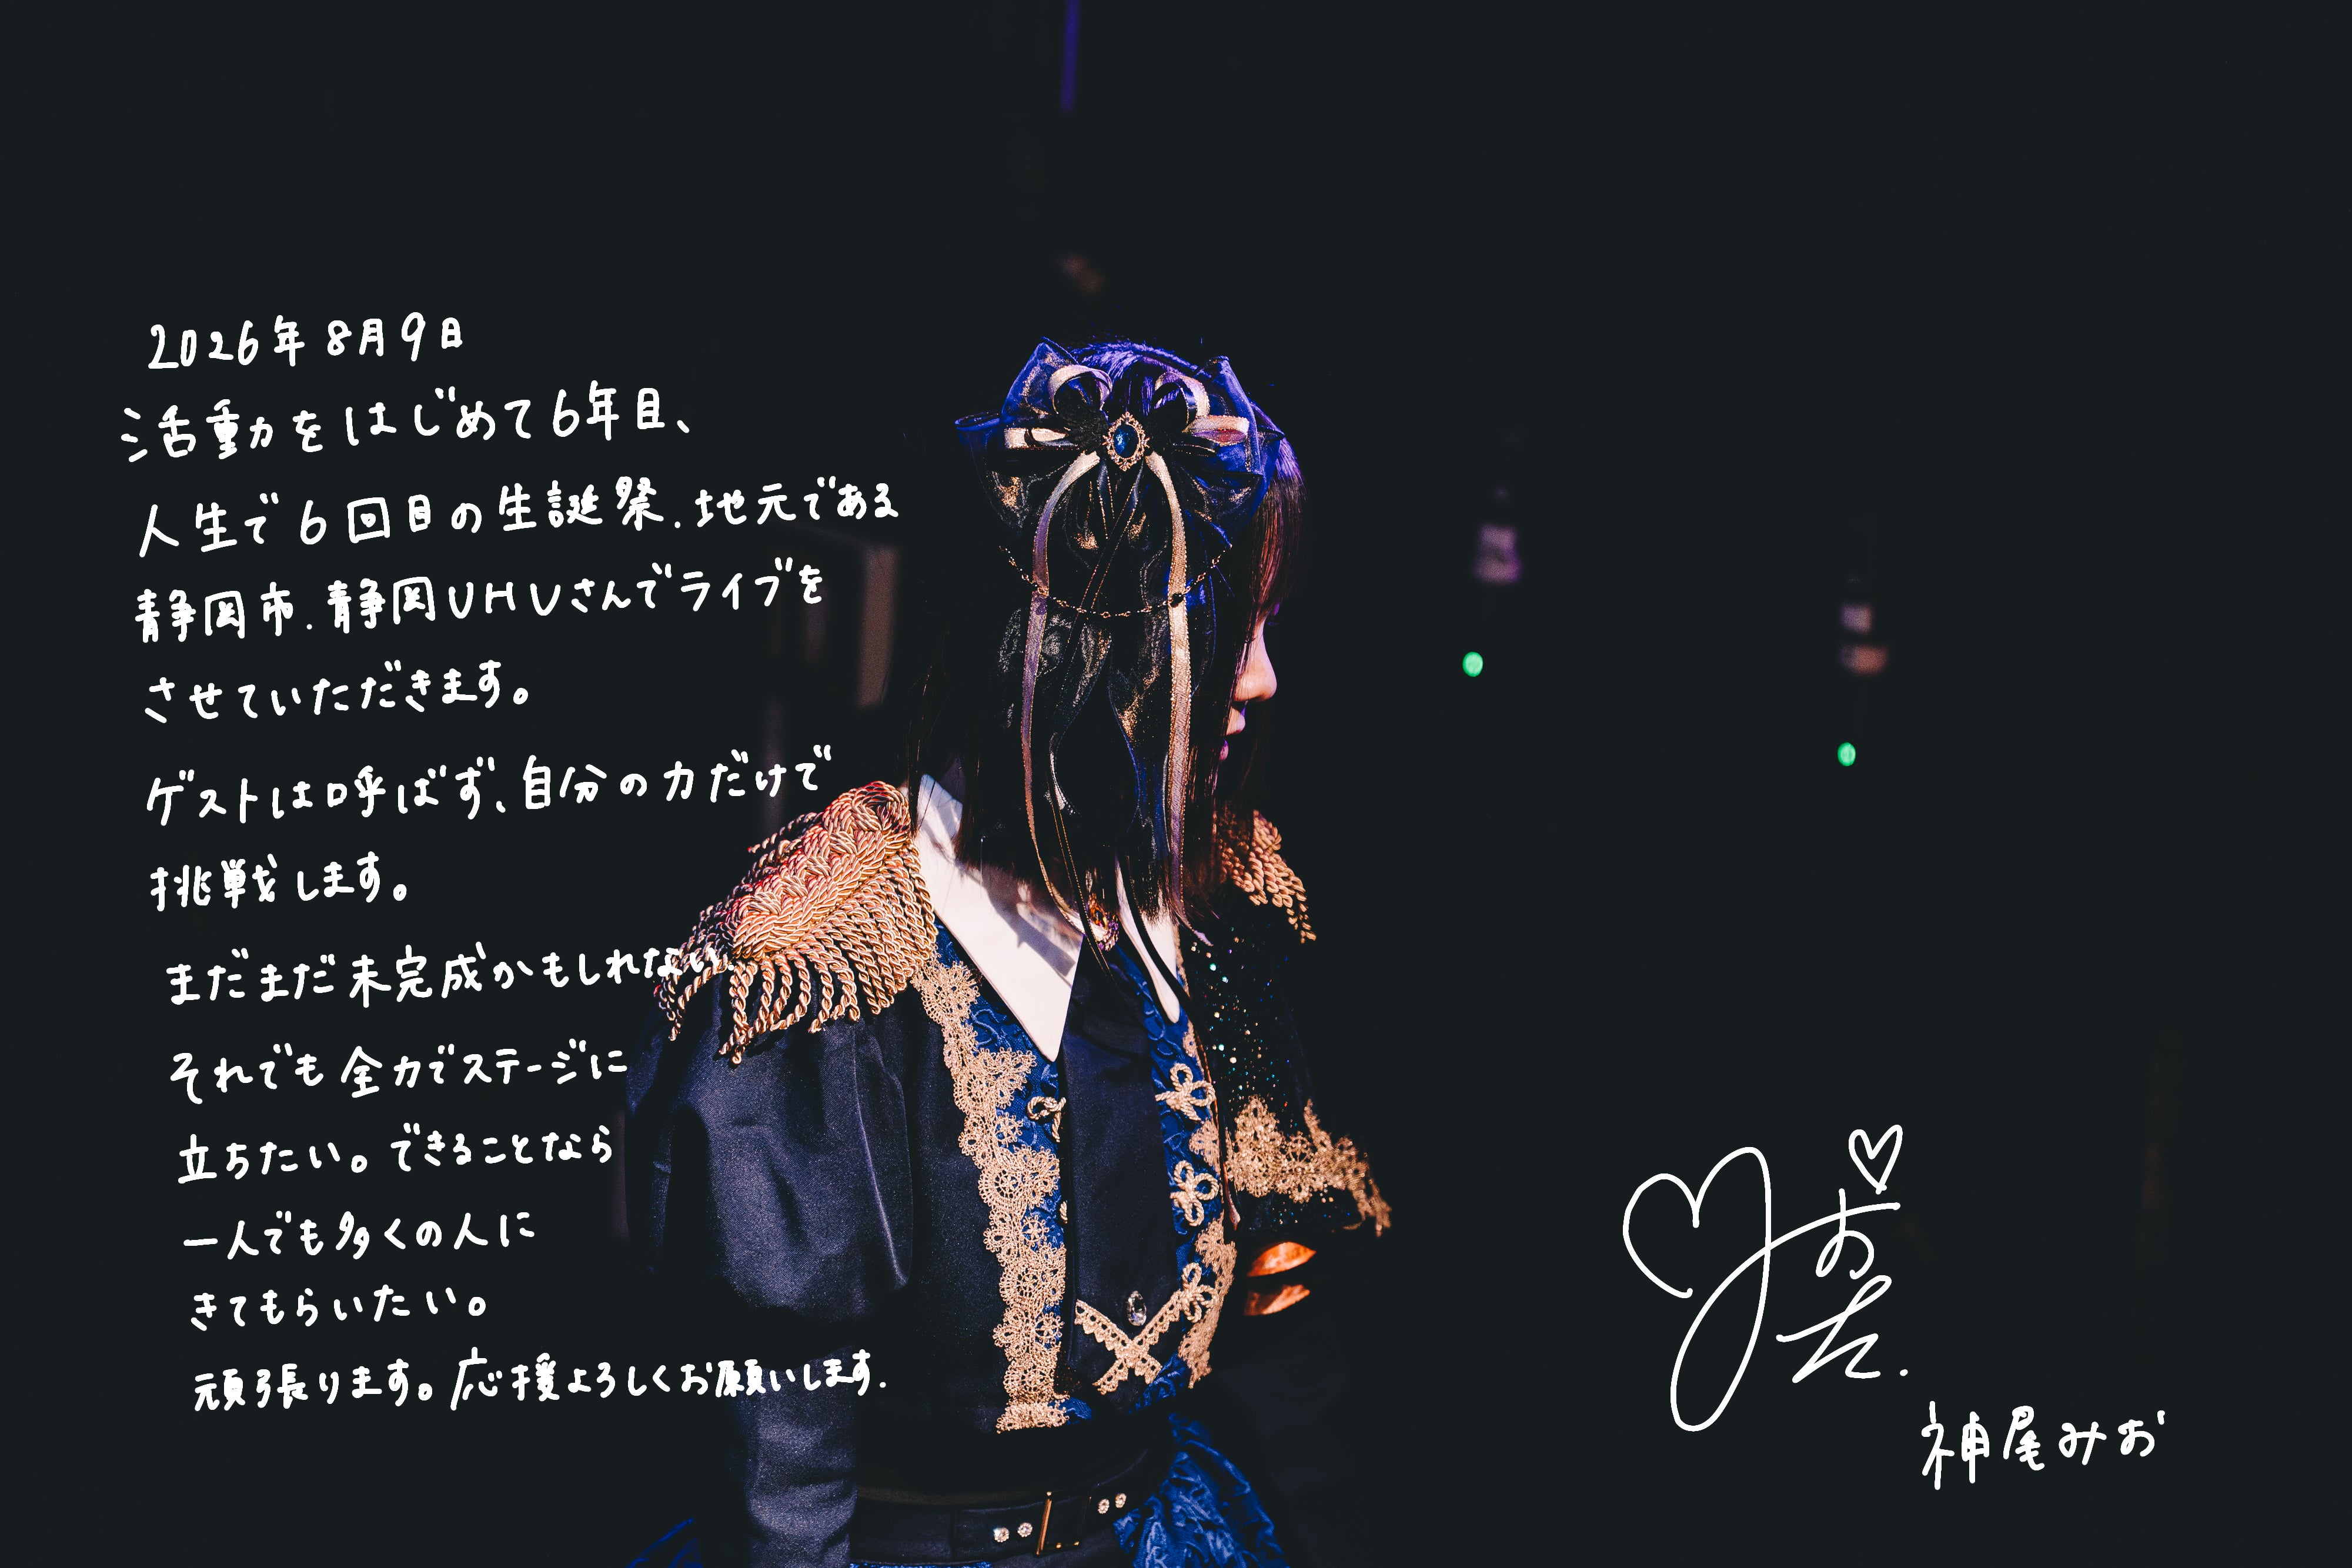 2026年8月9日
活動をはじめて6年目、
人生で6回目の生誕祭.地元である
静岡市.静岡UHUさんでライブを
させていただきます。
ゲストは呼ばず、自分の力だけで
挑戦します。
まだまだ未完成かもしれない.
それでも全力でステージに
立ちたい。できることなら
一人でも多くの人に
きてもらいたい。
頑張ります。応援よろしくお願いします.
神尾みお